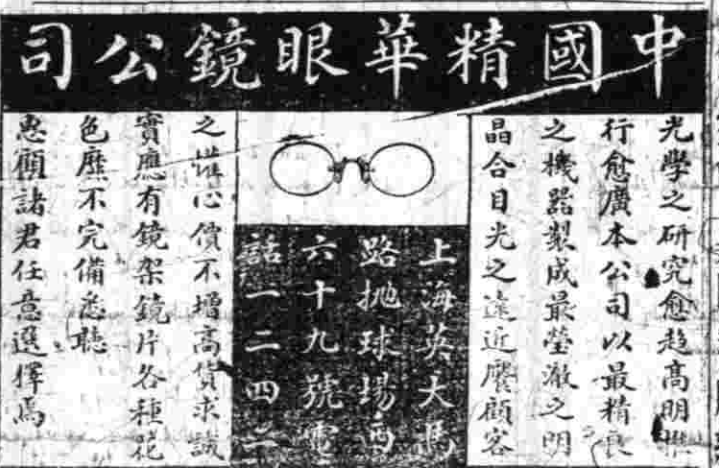 中國精華眼鏡公司
光學之研究愈趋高明推
行愈廣本公司以最精良
之機器製成最瑩澈之明
晶合目光之遠近饜顧客
上海英大馬
路抛球場西
六十九號電
話一二四二
之心價不增高貨求誠
實應有鏡架鏡片各種花
色歷不完備悉聽
惠顧諸君任意選擇焉